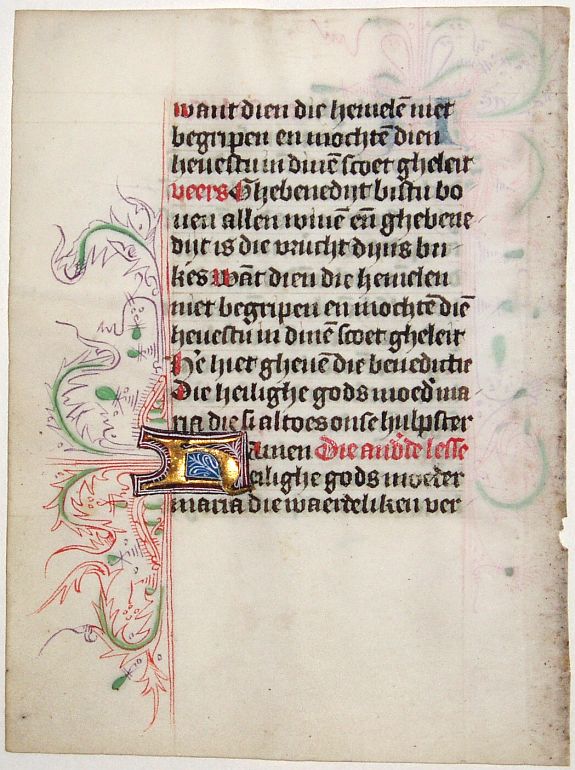 want dien die hemelē niet
begripen en mochtē dien
heuestu in dinē scoet gheleit
veers Ghebenedijt bistu bo
uen allen wiuē eñ ghebene
dijt is die vrucht dijns bu
kes Wāt dien die hemelen
niet begripen en mochtē diē
heuestu in dinē scoet gheleit
Hē hiet gheuē die benedictie
Die heilighe gods moed' ma
ria die si altoes onse hulpster
Amen Die and'de lesse
Heilighe gods moeder
maria die waerdeliken ver